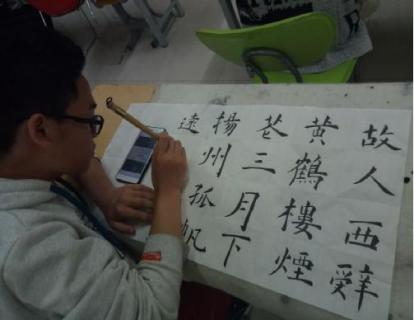 故人西辭
黄鶴樓煙
花三月下
揚州孤帆
遠